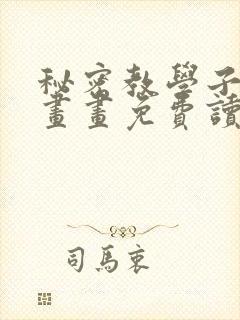 秘密教學子
畫畫免費讀
司馬衷